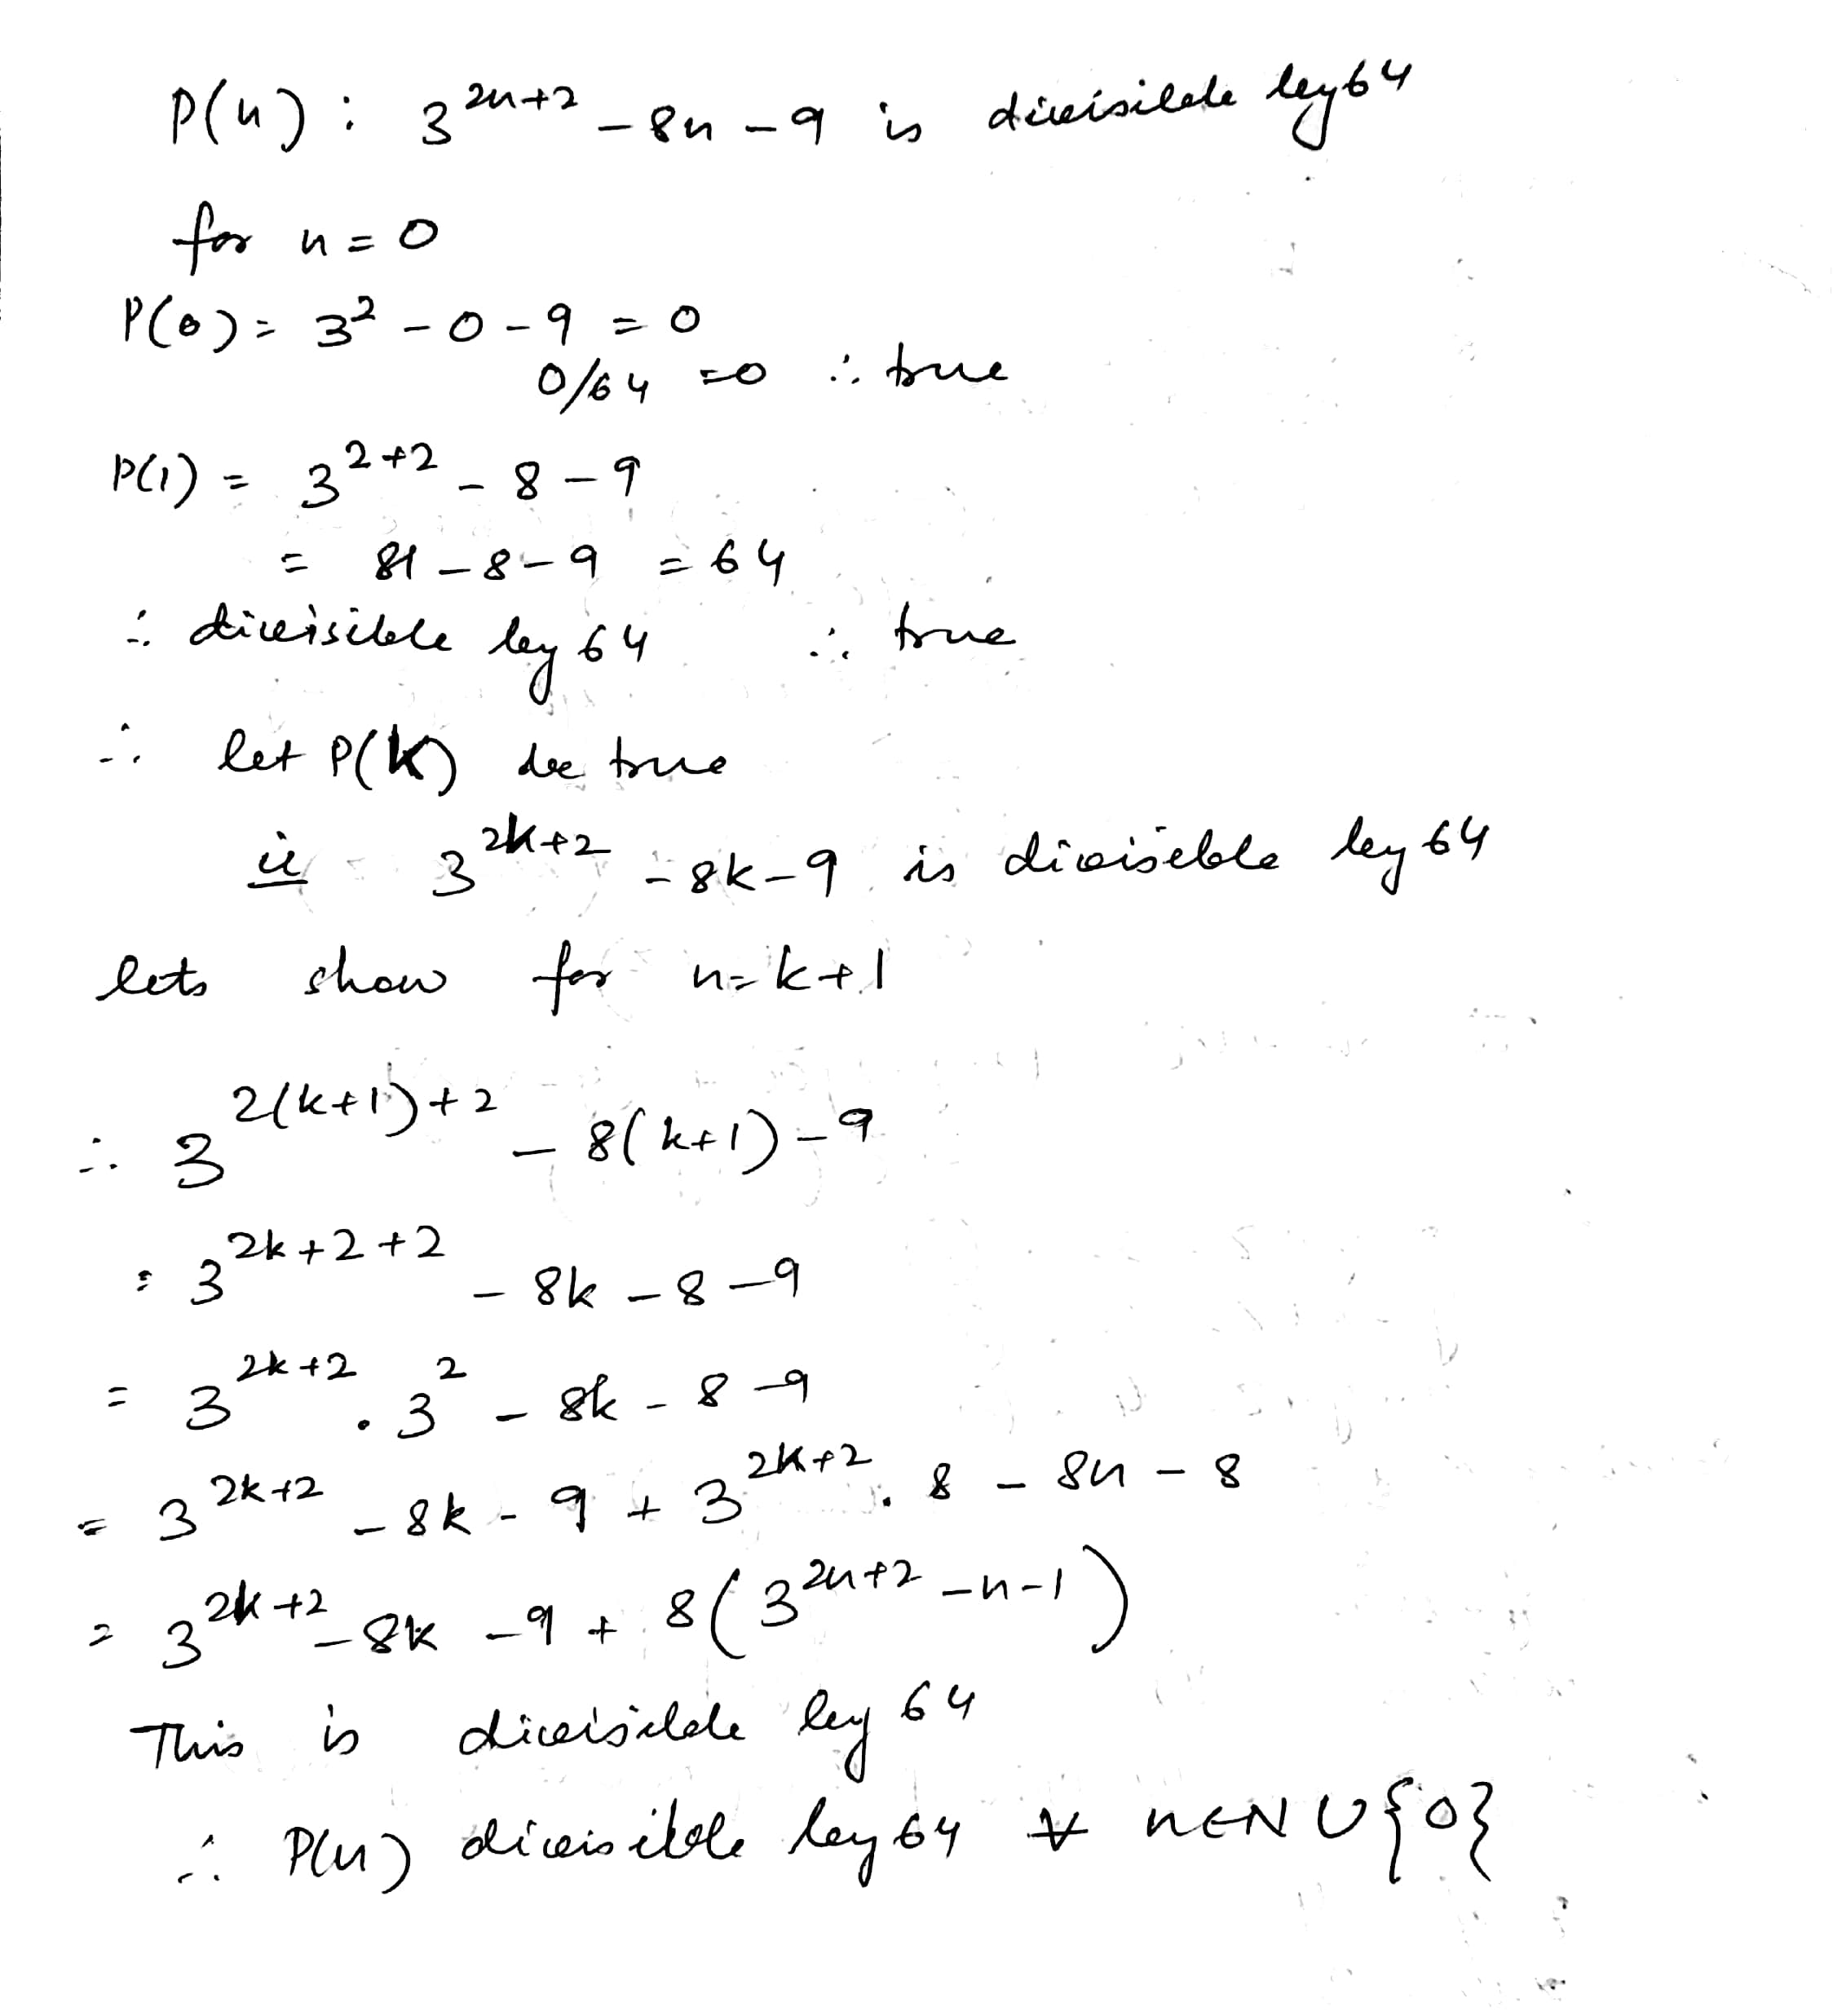 P(n) : 3^{2n+2} - 8n - 9 is divisible by 64
for n = 0
P(0) = 3^2 - 0 - 9 = 0
0/64 = 0 ∴ true
P(1) = 3^{2+2} - 8 - 9
= 81 - 8 - 9 = 64
∴ divisible by 64 ∴ true
∴ let P(k) be true
ie 3^{2k+2} - 8k - 9 is divisible by 64
lets show for n = k+1
∴ 3^{2(k+1)+2} - 8(k+1) - 9
= 3^{2k+2+2} - 8k - 8 - 9
= 3^{2k+2} . 3^2 - 8k - 8 - 9
= 3^{2k+2} - 8k - 9 + 3^{2k+2} . 8 - 8n - 8
= 3^{2k+2} - 8k - 9 + 8(3^{2n+2} - n - 1)
This is divisible by 64
∴ P(n) divisible by 64 ∀ n∈N ∪ {0}